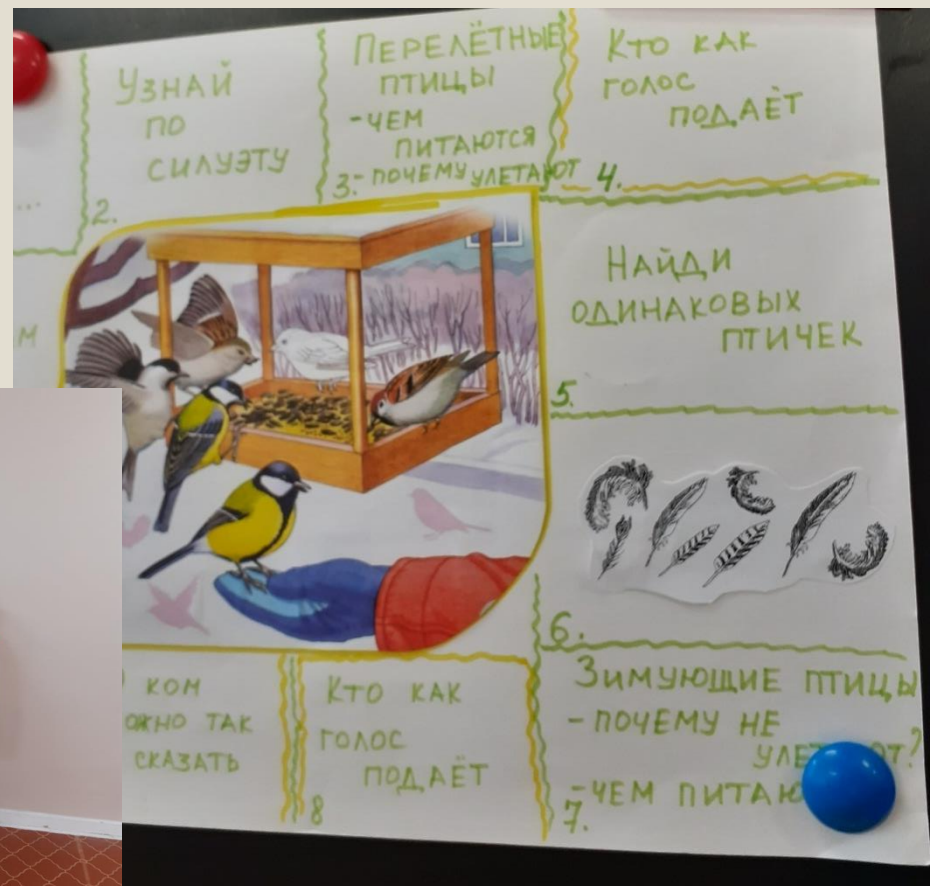 ...
УЗНАЙ
ПО
СИЛУЭТУ
2.
ПЕРЕЛЁТНЫЕ
ПТИЦЫ
-ЧЕМ
ПИТАЮТСЯ
3.- ПОЧЕМУ УЛЕТАЮТ
КТО КАК
ГОЛОС
ПОДАЁТ
4.
НАЙДИ
ОДИНАКОВЫХ
ПТИЧЕК
5.
6.
ЗИМУЮЩИЕ ПТИЦЫ
- ПОЧЕМУ НЕ
-ЧЕМ
7.
КТО КАК
ГОЛОС
ПОДАЁТ
8
КОМ
ТАК
СКАЗАТЬ